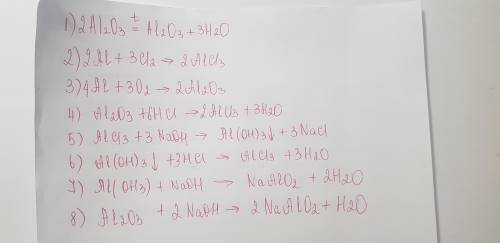 1) 2Al₂O₃ t= Al₂O₃ + 3H₂O
2) 2Al + 3Cl₂ → 2AlCl₃
3) 4Al + 3O₂ → 2Al₂O₃
4) Al₂O₃ + 6HCl → 2AlCl₃ + 3H₂O
5) AlCl₃ + 3NaOH → Al(OH)₃↓ + 3NaCl
6) Al(OH)₃↓ + 3HCl → AlCl₃ + 3H₂O
7) Al(OH3) + NaOH → NaAlO₂ + 2H₂O
8) Al₂O₃ + 2NaOH → 2NaAlO₂ + H₂O